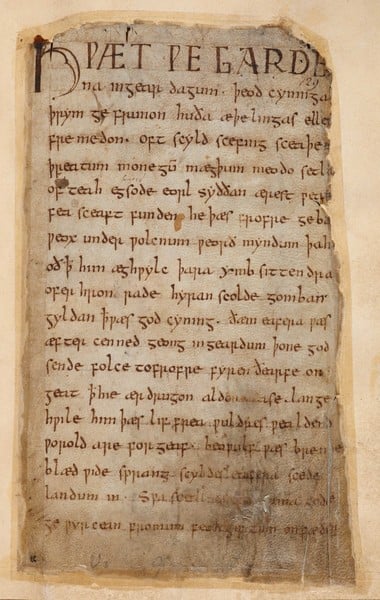 HǷÆT ǷE GARDE
na ingear dagum. þeod cyninga
þrym ge frunon huða æþelingas elle
fre medon. oft scyld scefing sceaþe
þreatum monegū mægþum meodo setla
of teah egsode eorl syððan ærest
fea sceaft funden he þæs frofre geba
ƿeox under ƿolcnum ƿeorð myndum þah
oð ꝥ him æghƿylc þara ymb sittendra
ofer hron rade hyran scolde gomban
gyldan ꝥ ƿæs god cyning. ðæm eafera ƿæs
æfter cenned geong ingeardum þone god
sende folce tofrofre fyren ðearfe on
geat ꝥ hie ær drugon aldor ase. lange
hƿile him þæs lif frea ƿuldres ƿealdend
ƿorold are for geaf. beoƿulf ƿæs breme
blæd ƿide sprang scyldes eafera scede
landum in. Sƿa sceal guma gode
ge ƿyrcean fromum feoh giftum on fæder